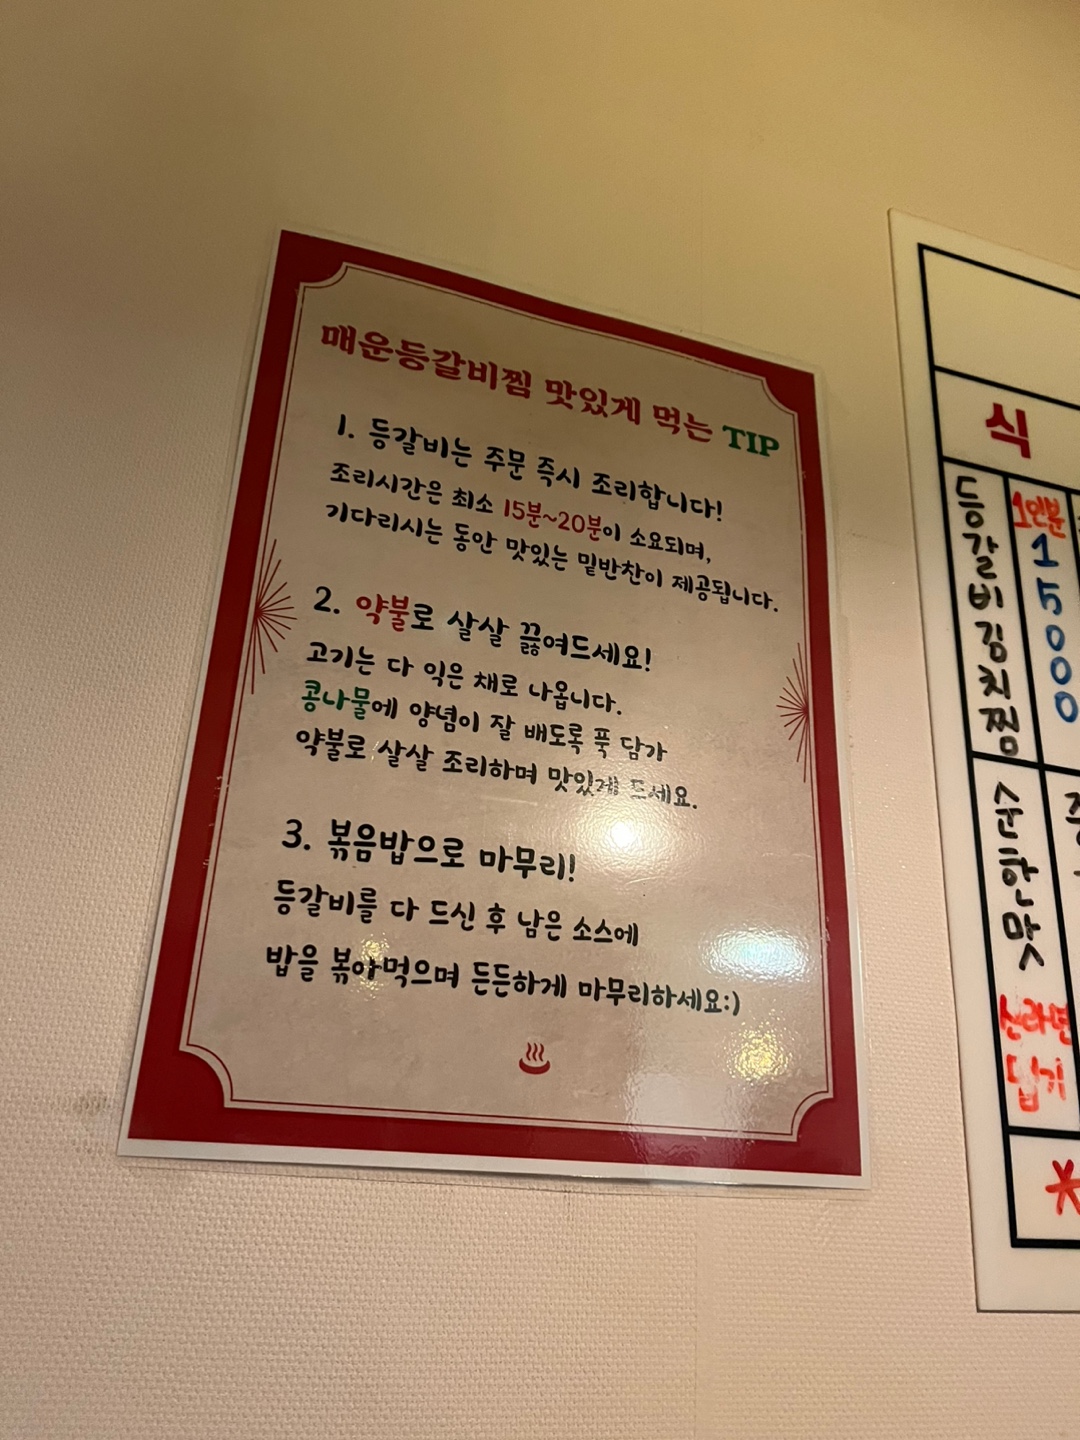 매운등갈비찜 맛있게 먹는 TIP
1. 등갈비는 주문 즉시 조리합니다!
조리시간은 최소 15분~20분이 소요되며,
기다리시는 동안 맛있는 밑반찬이 제공됩니다.
2. 약불로 살살 끓여드세요!
고기는 다 익은 채로 나옵니다.
콩나물에 양념이 잘 배도록 푹 담가
약불로 살살 조리하며 맛있게 드세요.
3. 볶음밥으로 마무리!
등갈비를 다 드신 후 남은 소스에
밥을 볶아먹으며 든든하게 마무리하세요:)
식
등갈비김치찜
1인분
15000
순한맛
신라면
맵기
*